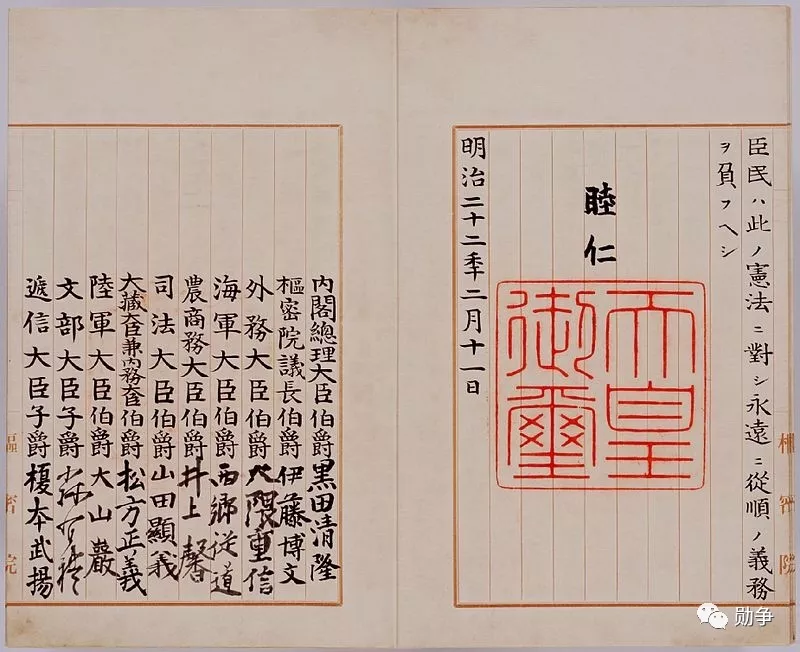 臣民ハ此ノ憲法ニ對シ永遠ニ從順ノ義務
ヲ負フヘシ
睦仁
天皇
御璽
明治二十二年二月十一日
內閣總理大臣伯爵黒田清隆
樞密院議長伯爵伊藤博文
外務大臣伯爵大隈重信
海軍大臣伯爵西郷従道
農商務大臣伯爵井上馨
司法大臣伯爵山田顯義
大藏大臣兼內務大臣伯爵松方正義
陸軍大臣伯爵大山巖
文部大臣子爵
遞信大臣子爵榎本武揚
樞密院
樞密院
勋争